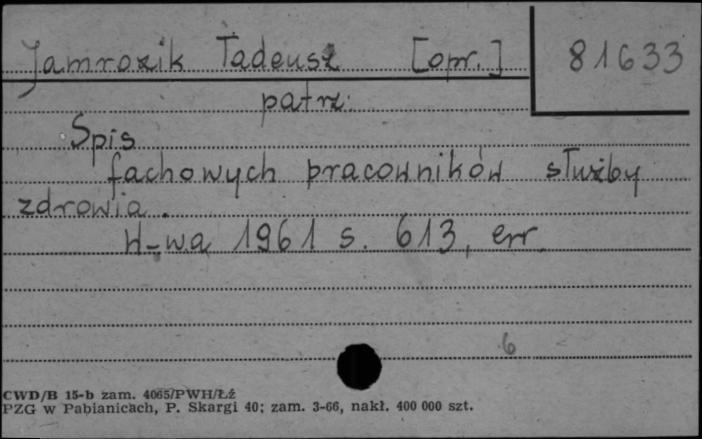 Jamrozik Tadeusz [opr.] 81633
patrz:
Spis
fachowych pracowników służby
zdrowia.
W-wa 1961 s. 613, err.
6
CWD/B 15-b zam. 4065/PWH/Łź
PZG w Pabianicach, P. Skargi 40; zam. 3-66, nakł. 400 000 szt.